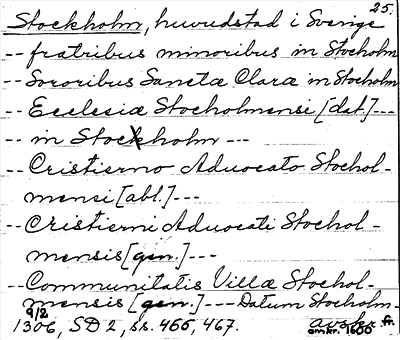 25.
Stockholm, huvudstad i Sverige
-- fratribus minoribus in Stocholm
-- Sororibus Sanctæ Claræ in Stocholm
-- Ecclesiæ Stocholmensi [dat.] ---
-- in Stockholm ---
-- Cristierno Aduocato Stochol-
mensi [abl.] ---
-- Cristierni Aduocati Stochol-
mensis [gen.] ---
-- Communitatis Villæ Stochol-
mensis [gen.] --- Datum Stocholm.
9/2
1306, SD 2, ss. 466, 467. avskr. fr.
omkr. 1600